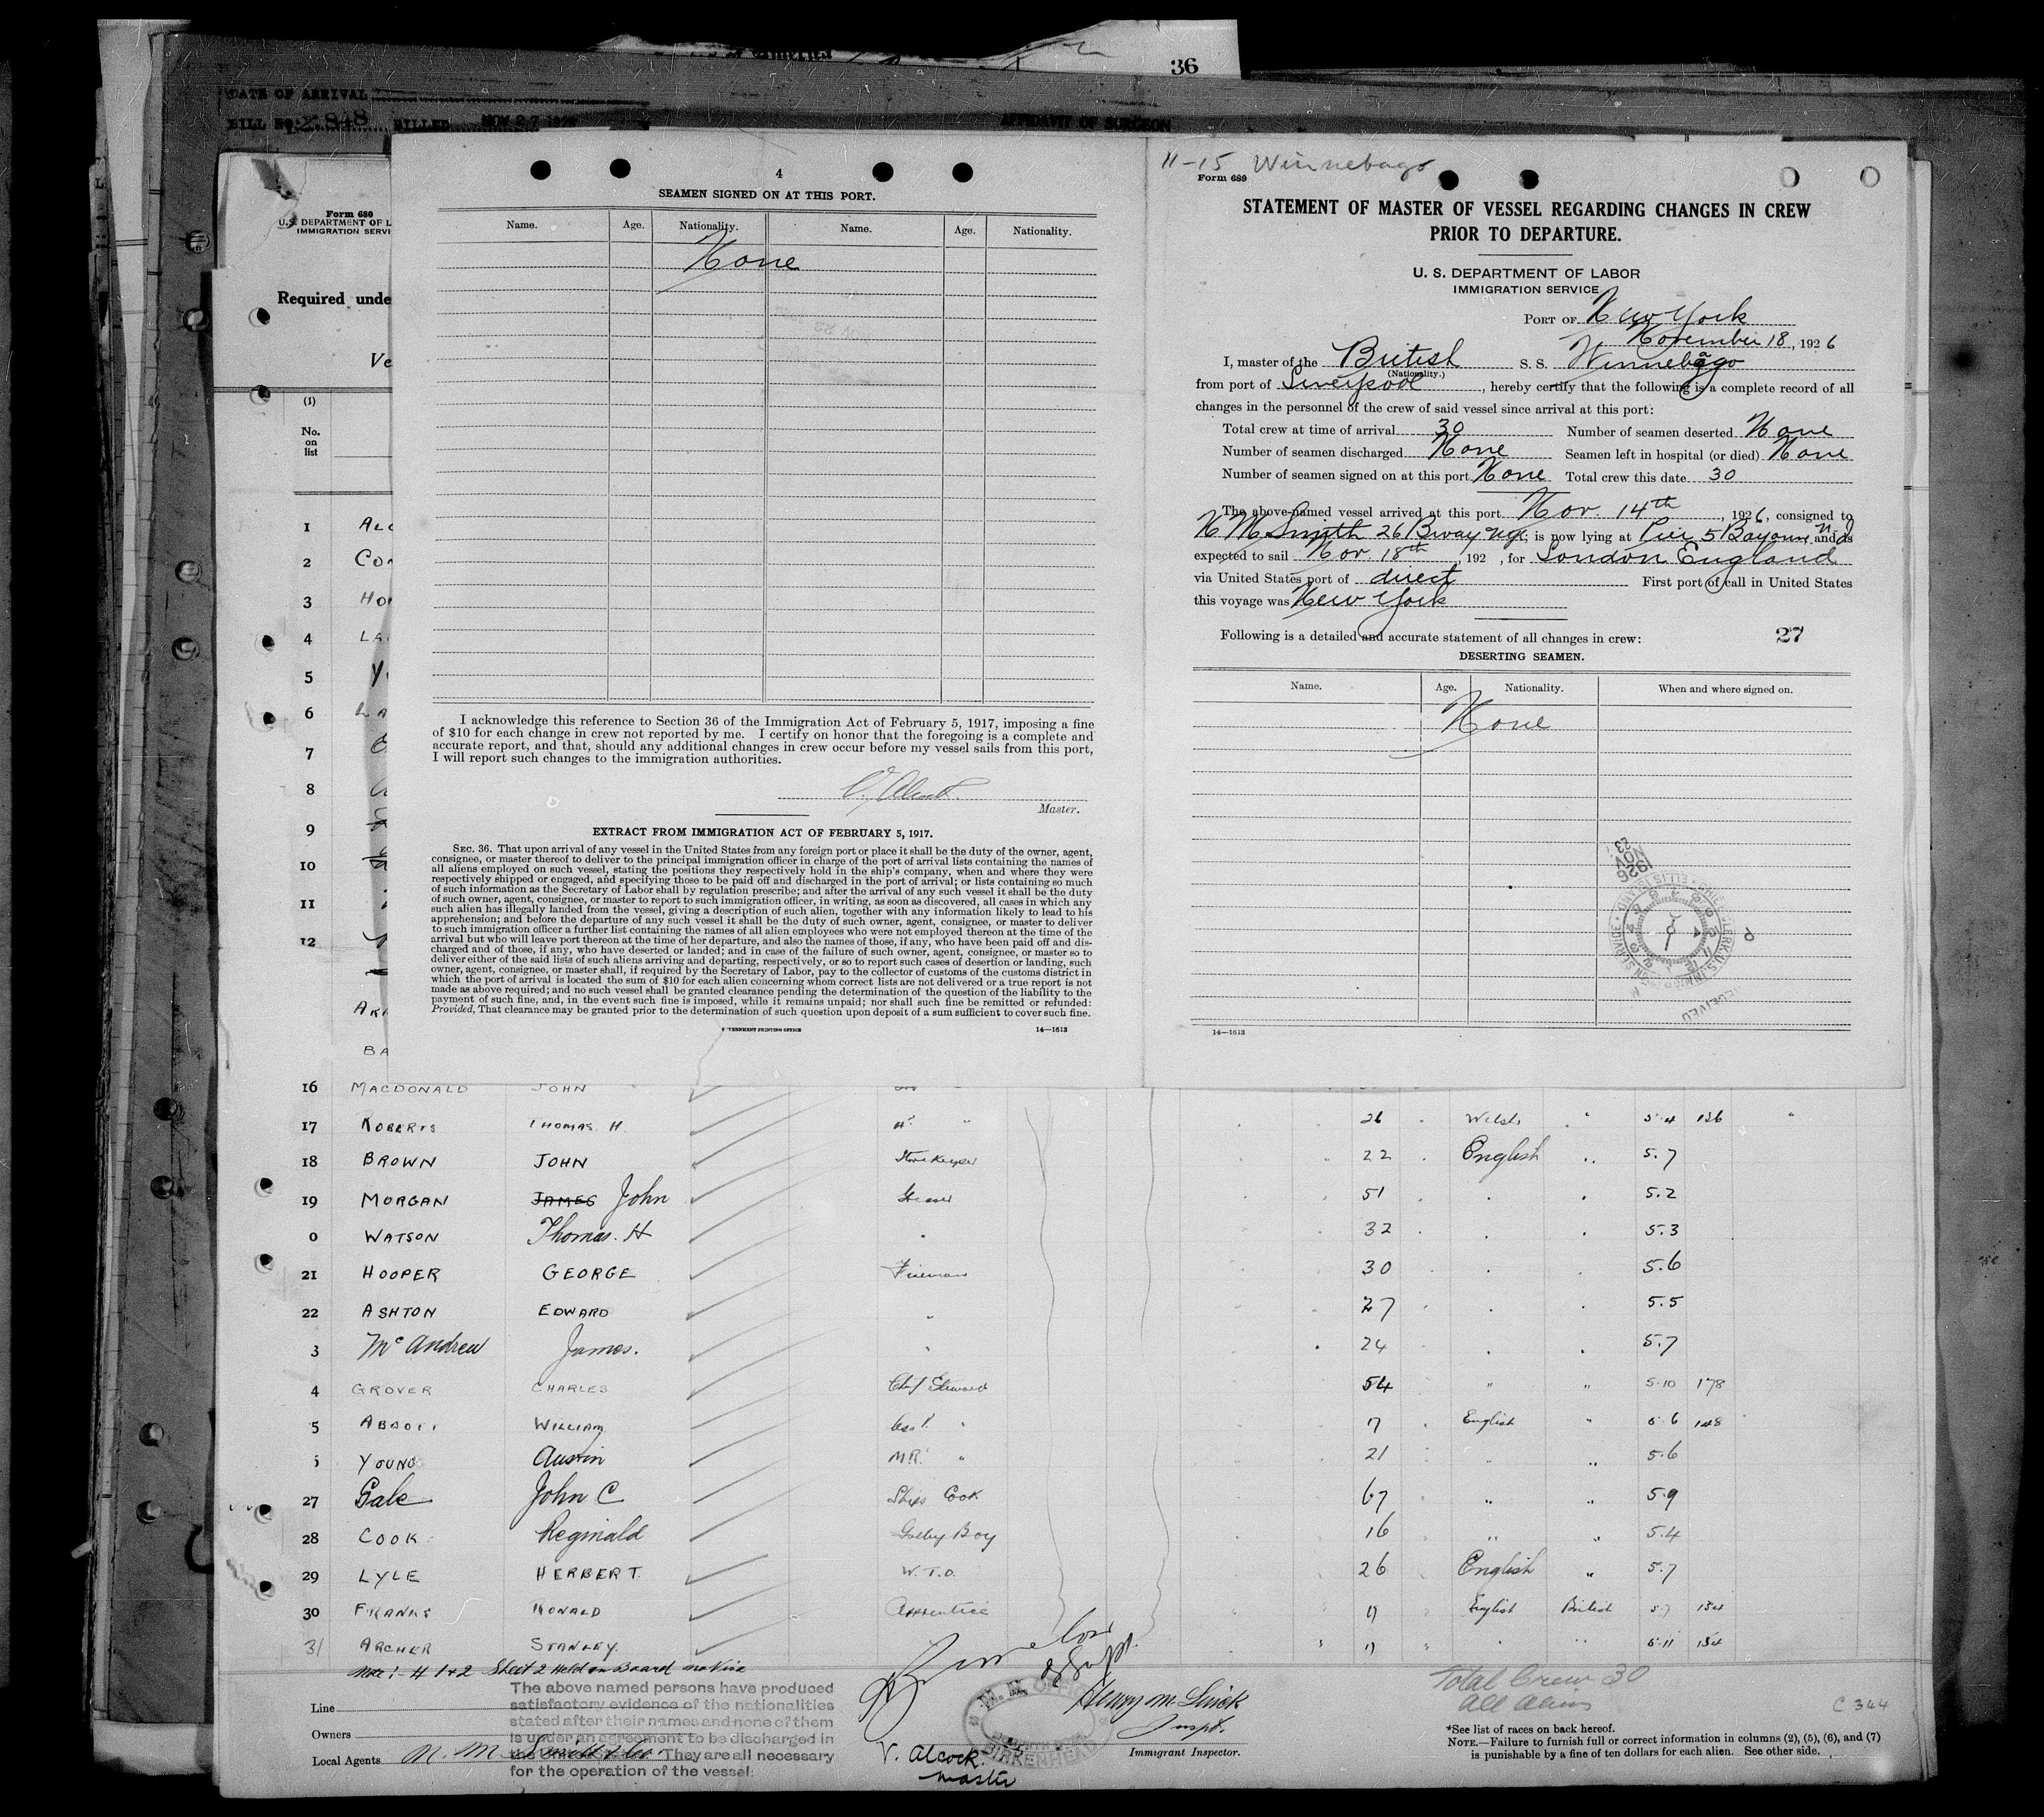 36
DATE OF ARRIVAL
BILL No. 848 BILLED NOV 27 192
AFFIDAVIT OF SURGEON
4
SEAMEN SIGNED ON AT THIS PORT.
Name. Age. Nationality. Name. Age. Nationality.
None
I acknowledge this reference to Section 36 of the Immigration Act of February 5, 1917, imposing a fine
of $10 for each change in crew not reported by me. I certify on honor that the foregoing is a complete and
accurate report, and that, should any additional changes in crew occur before my vessel sails from this port,
I will report such changes to the immigration authorities.
V. Alcock.
Master.
EXTRACT FROM IMMIGRATION ACT OF FEBRUARY 5, 1917.
SEC. 36. That upon arrival of any vessel in the United States from any foreign port or place it shall be the duty of the owner, agent,
consignee, or master thereof to deliver to the principal immigration officer in charge of the port of arrival lists containing the names of
all aliens employed on such vessel, stating the positions they respectively hold in the ship's company, when and where they were
respectively shipped or engaged, and specifying those to be paid off and discharged in the port of arrival; or lists containing so much
of such information as the Secretary of Labor shall by regulation prescribe; and after the arrival of any such vessel it shall be the duty
of such owner, agent, consignee, or master to report to such immigration officer, in writing, as soon as discovered, all cases in which any
such alien has illegally landed from the vessel, giving a description of such alien, together with any information likely to lead to his
apprehension; and before the departure of any such vessel it shall be the duty of such owner, agent, consignee, or master to deliver
to such immigration officer a further list containing the names of all alien employees who were not employed thereon at the time of the
arrival but who will leave port thereon at the time of her departure, and also the names of those, if any, who have been paid off and dis-
charged and of those, if any, who have deserted or landed; and in case of the failure of such owner, agent, consignee, or master so to
deliver either of the said lists of such aliens arriving and departing, respectively, or so to report such cases of desertion or landing, such
owner, agent, consignee, or master shall, if required by the Secretary of Labor, pay to the collector of customs of the customs district in
which the port of arrival is located the sum of $10 for each alien concerning whom correct lists are not delivered or a true report is not
made as above required; and no such vessel shall be granted clearance pending the determination of the question of the liability to the
payment of such fine, and, in the event such fine is imposed, while it remains unpaid; nor shall such fine be remitted or refunded:
Provided, That clearance may be granted prior to the determination of such question upon deposit of a sum sufficient to cover such fine.
VERNMENT PRINTING OFFICE 14—1613
11-15 Winnebago
Form 689
STATEMENT OF MASTER OF VESSEL REGARDING CHANGES IN CREW
PRIOR TO DEPARTURE.
U. S. DEPARTMENT OF LABOR
IMMIGRATION SERVICE
PORT OF New York
November 18, 1926
I, master of the British S. S. Winnebago
(Nationality.)
from port of Liverpool, hereby certify that the following is a complete record of all
changes in the personnel of the crew of said vessel since arrival at this port:
Total crew at time of arrival 30 Number of seamen deserted None
Number of seamen discharged None Seamen left in hospital (or died) None
Number of seamen signed on at this port None Total crew this date 30
The above-named vessel arrived at this port Nov. 14th, 1926, consigned to
N M Smith 26 Bway nyc, is now lying at Pier 5 Bayonne N.J. and is
expected to sail Nov. 18th, 192 , for London England
via United States port of direct First port of call in United States
this voyage was New York
Following is a detailed and accurate statement of all changes in crew: 27
DESERTING SEAMEN.
Name. Age. Nationality. When and where signed on.
None
1926
NOV
23
RECEIVED
14—1613
Form 680
U. S. DEPARTMENT OF L
IMMIGRATION SERVI
Required unde
Ve
(1)
No.
on
list
1 ALC
2 CON
3 HO
4 LA
5 Y
6 LA
7
8
9
10
11
12
BA
16 MACDONALD JOHN
17 ROBERTS THOMAS H 26 Welsh " 5.4 136 "
18 BROWN JOHN Storekeeper 22 English " 5.7
19 MORGAN JAMES John Greaser 51 5.2
0 WATSON Thomas. H " 32 5.3
21 HOOPER GEORGE Fireman 30 5.6
22 ASHTON EDWARD " 27 5.5
3 McAndrew James. " 24 5.7
4 GROVER CHARLES Chief Steward 54 " " 5.10 178
5 ABBOTT WILLIAM Asst. " 17 English " 5.6 148
YOUNG Austin M.R. " 21 " " 5.6
27 Gale John C Ships Cook 67 " " 5.9
28 COOK Reginald Galley Boy 16 " " 5.4
29 LYLE HERBERT. W.T.O. 26 English " 5.7
30 FRANKS RONALD Apprentice 17 English British 5.7 134
31 ARCHER STANLEY. 17 " " 5.11 154
Note:- # 1+2 Sheet 2 Held on Board no Visa
The above named persons have produced
satisfactory evidence of the nationalities
stated after their names and none of them
is under an agreement to be discharged in
They are all necessary
for the operation of the vessel.
Line
Owners
Local Agents N. M. Smith & Co.
BIRKENHEAD
V. Alcock
master
Immigrant Inspector.
Total Crew 30
All Aliens
C 344
*See list of races on back hereof.
NOTE.—Failure to furnish full or correct information in columns (2), (5), (6), and (7)
is punishable by a fine of ten dollars for each alien. See other side.